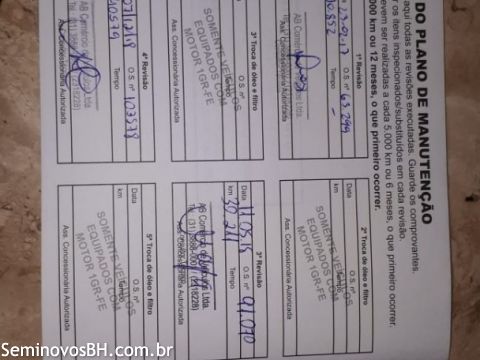 DO PLANO DE MANUTENÇÃO
aqui todas as revisões executadas. Guarde os comprovantes.
os itens inspecionados/substituídos em cada revisão.
devem ser realizadas a cada 5.000 km ou 6 meses, o que primeiro ocorrer.
000 km ou 12 meses, o que primeiro ocorrer.
1ª Revisão
O.S. nº 63.299
Tempo
Ass. Concessionária Autorizada
2ª Troca de óleo e filtro
Data O.S. nº
km Tempo
SOMENTE VEÍCULOS
EQUIPADOS COM
MOTOR 1GR-FE
Ass. Concessionária Autorizada
3ª Troca de óleo e filtro
O.S. nº
Tempo
SOMENTE VEÍCULOS
EQUIPADOS COM
MOTOR 1GR-FE
Ass. Concessionária Autorizada
3ª Revisão
Data 11.05.15 O.S. nº 91.070
km 30.211 Tempo
AB Comércio Ltda
Ass. Concessionária Autorizada
4ª Revisão
O.S. nº 103578
Tempo
AB Comércio Ltda.
Ass. Concessionária Autorizada
5ª Troca de óleo e filtro
Data O.S. nº
km Tempo
SOMENTE VEÍCULOS
EQUIPADOS COM
MOTOR 1GR-FE
Ass. Concessionária Autorizada
SeminovosBH.com.br